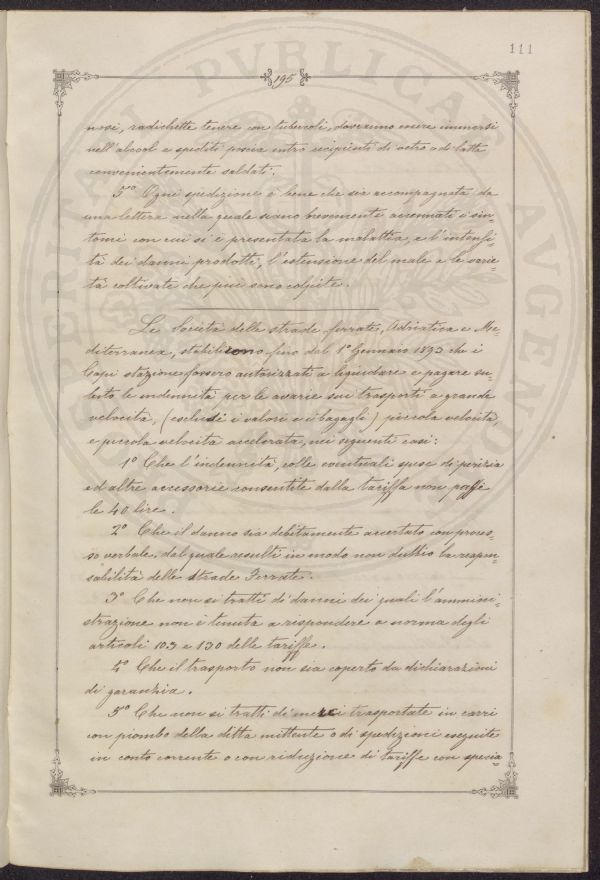 111
195
nosi, radichette tenere con tubercoli, dovranno essere immersi
nell'alcool e spediti poscia entro recipienti di vetro o di latta
convenientemente saldati.
5º Ogni spedizione è bene che sia accompagnata da
una lettera nella quale siano brevemente accennati i sin=
tomi con cui si è presentata la malattia, e l'intensi
tà dei danni prodotti, l'estensione del male e le varie=
tà coltivate che più sono colpite.
Le Società delle strade ferrate, Adriatica e Me=
diterranea, stabilirono fino dal 1º Gennaio 1893 che i
Capi stazione fossero autorizzati a liquidare e pagare su=
bito le indennità per le avarie sui trasporti a grande
velocità, (esclusi i valori e i bagagli) piccola velocità,
e piccola velocità accelerata, nei seguenti casi:
1º Che l'indennità, colle eventuali spese di perizia
ed altre accessorie consentite dalla tariffa non passi
le 40 lire.
2º Che il danno sia debitamente accertato con proces=
so verbale, dal quale resulti in modo non dubbio la respon=
sabilità delle Strade Ferrate.
3º Che non si tratti di danni dei quali l'ammini=
strazione non è tenuta a rispondere a norma degli
articoli 103 e 130 delle tariffe.
4º Che il trasporto non sia coperto da dichiarazioni
di garanzia.
5º Che non si tratti di merci trasportate in carri
con piombo della ditta mittente o di spedizioni eseguite
in conto corrente o con riduzione di tariffe con specia=